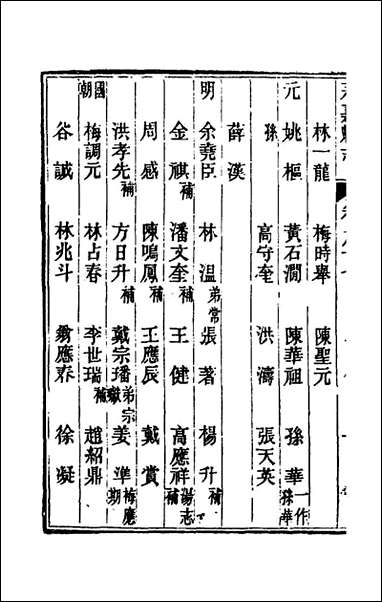 林一龍 梅時舉 陳聖元
元 姚樞 黃石澗 陳華祖 孫華一作孫華
孫 高守奎 洪濤 張天英
薛漢
明 余堯臣 林溫弟常 張著 楊升補
金祺補 潘文奎補 王健 高應祥湯志補
周感 陳鳴鳳補 王應辰 戴賞
洪孝先補 方日升補 戴宗璠弟宗嶽 姜準梅應期
國朝 梅調元 林占春 李世瑞補 趙紹鼎
谷誠 林兆斗 徐凝